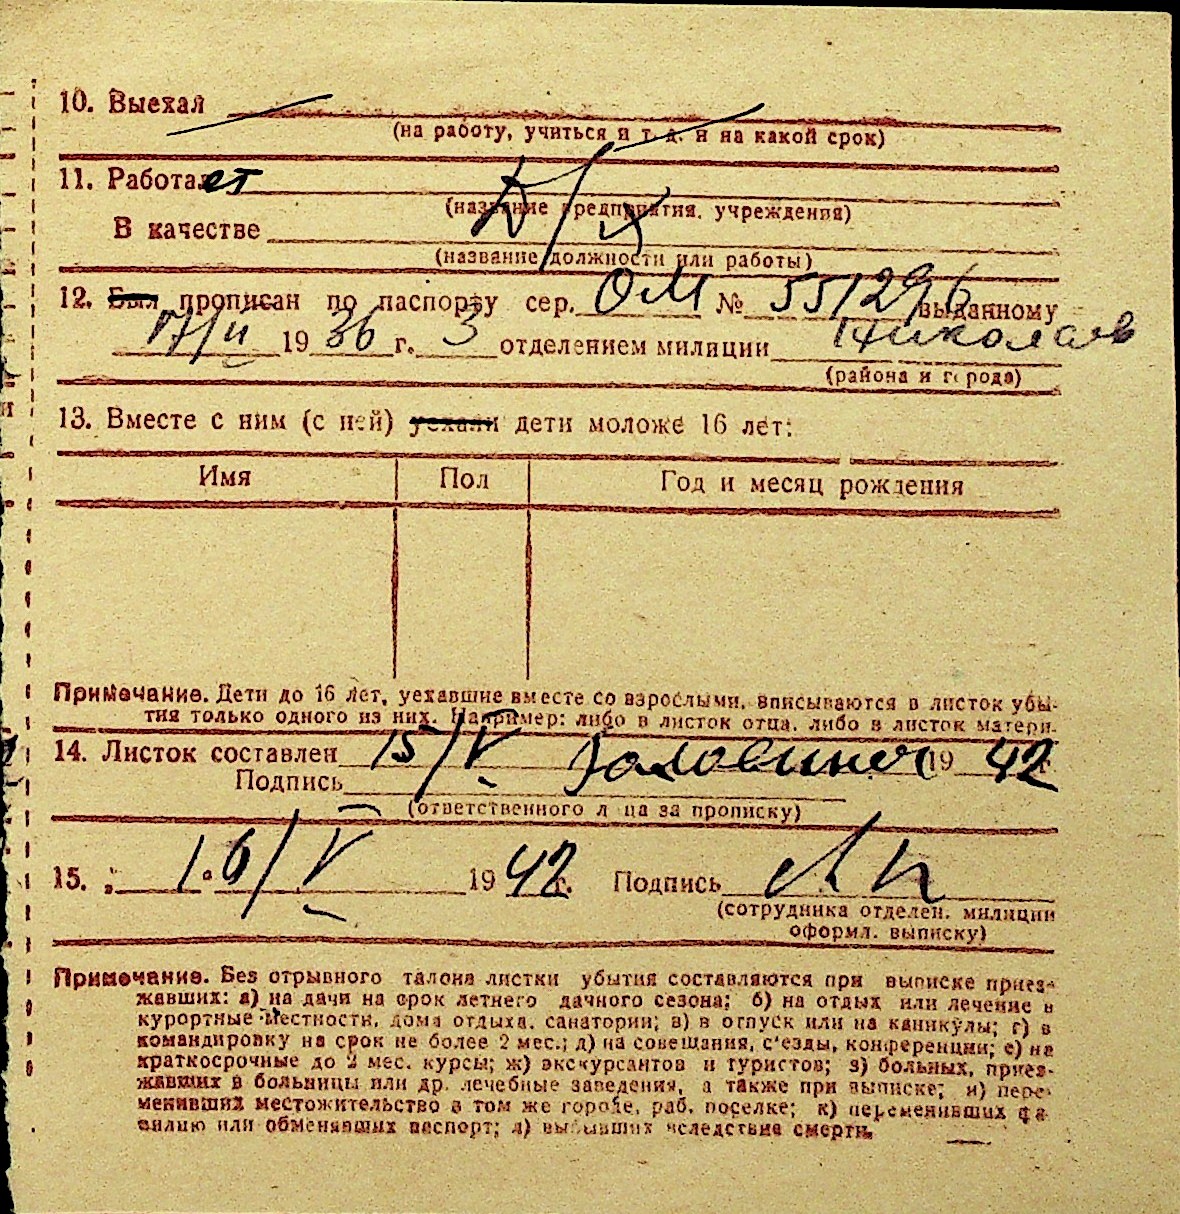 10. Выехал
(на работу, учиться и т. д. и на какой срок)
11. Работает
Д/х
(название предприятия, учреждения)
В качестве
(название должности или работы)
12. Был прописан по паспорту сер. ОМ № 551296 выданному
17/II 1936 г. 3 отделением милиции Николаев
(района и города)
13. Вместе с ним (с ней) уехали дети моложе 16 лет:
Имя Пол Год и месяц рождения
Примечание. Дети до 16 лет, уехавшие вместе со взрослыми, вписываются в листок убы-
тия только одного из них. Например: либо в листок отца, либо в листок матери.
14. Листок составлен 15/V 1942 г.
Подпись
(ответственного лица за прописку)
15. „ 16/V 1942 г. Подпись
(сотрудника отделен. милиции
оформл. выписку)
Примечание. Без отрывного талона листки убытия составляются при выписке приез-
жавших: а) на дачи на срок летнего дачного сезона; б) на отдых или лечение в
курортные местности, дома отдыха, санатории; в) в отпуск или на каникулы; г) в
командировку на срок не более 2 мес.; д) на совещания, с'езды, конференции; е) на
краткосрочные до 2 мес. курсы; ж) экскурсантов и туристов; з) больных, приез-
жавших в больницы или др. лечебные заведения, а также при выписке; и) пере-
менивших местожительство в том же городе, раб. поселке; к) переменивших фа-
милию или обменявших паспорт; л) выбывших вследствие смерти.